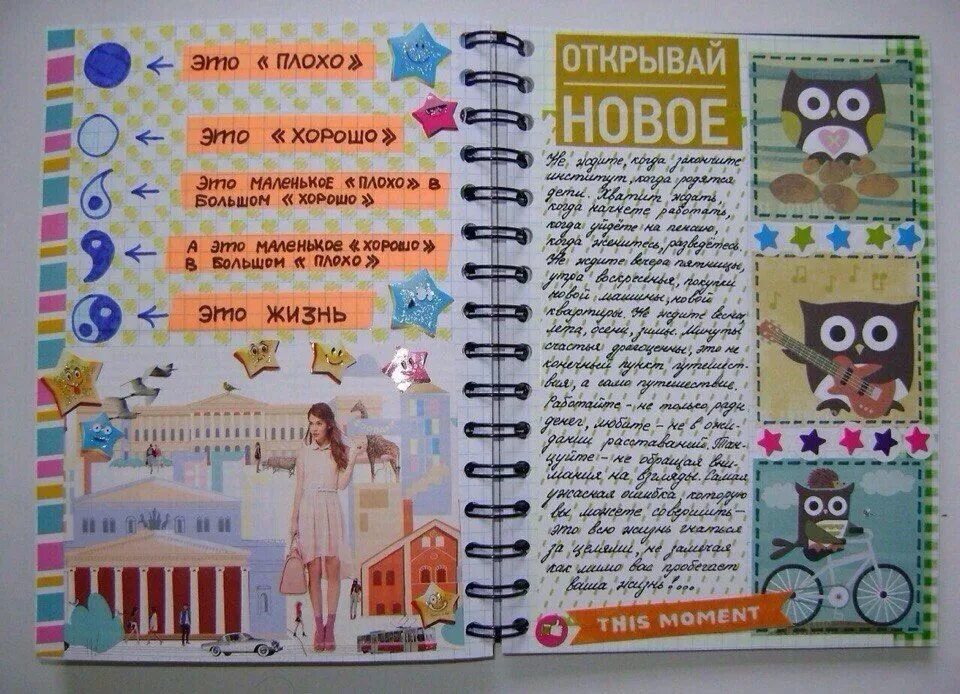 ЭТО «ПЛОХО»
ЭТО «ХОРОШО»
ЭТО МАЛЕНЬКОЕ «ПЛОХО» В
БОЛЬШОМ «ХОРОШО»
А ЭТО МАЛЕНЬКОЕ «ХОРОШО»
В БОЛЬШОМ «ПЛОХО»
ЭТО ЖИЗНЬ
ОТКРЫВАЙ
НОВОЕ
Не ждите, когда закончите
институт, когда родятся
дети. Хватит ждать,
когда начнете работать,
когда уйдёте на пенсию,
когда женитесь, разведётесь.
Не ждите вечера пятницы,
утра воскресенья, покупки
новой машины, новой
квартиры. Не ждите весны,
лета, осени, зимы. Минуты
счастья драгоценны, это не
конечный пункт путешест-
вия, а само путешествие.
Работайте - не только ради
денег, любите - не в ожи-
дании расставаний. Тан-
цуйте - не обращая вни-
мания на взгляды. Самая
ужасная ошибка, которую
вы можете совершить -
это всю жизнь гнаться
за целями, не замечая
как мимо вас пробегает
ваша жизнь!...
THIS MOMENT